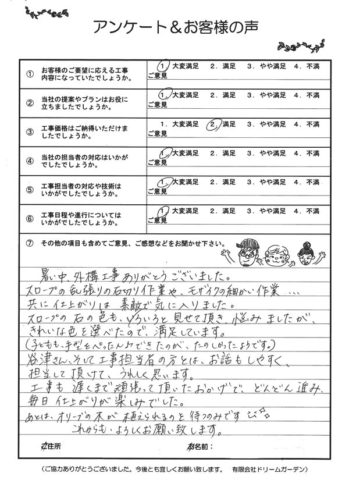 アンケート＆お客様の声
① お客様のご要望に応える工事内容になっていたでしょうか。 1．大変満足 2．満足 3．やや満足 4．不満
ご意見
② 当社の提案やプランはお役に立ちましたでしょうか。 1．大変満足 2．満足 3．やや満足 4．不満
ご意見
③ 工事価格はご納得いただけましたでしょうか。 1．大変満足 2．満足 3．やや満足 4．不満
ご意見
④ 当社の担当者の対応はいかがでしたでしょうか。 1．大変満足 2．満足 3．やや満足 4．不満
ご意見
⑤ 工事担当者の対応や技術はいかがでしたでしょうか。 1．大変満足 2．満足 3．やや満足 4．不満
ご意見
⑥ 工事日程や進行についてはいかがでしたでしょうか。 1．大変満足 2．満足 3．やや満足 4．不満
ご意見
⑦ その他の項目も含めてご意見、ご感想などをお聞かせ下さい。
暑い中、外構工事ありがとうございました。
スロープの乱張りの石切り作業や、モザイクの細かい作業…
共に仕上がりは素敵で気に入りました。
スロープの石の色も、いろいろと見せて頂き、悩みましたが、
きれいな色を選べたので、満足しています。
(子どもも、手型をぺったんができたのが、たのしかったようです。)
谷津さん、そして工事担当者の方とは、お話もしやすく、
担当して頂けて、うれしく思います。
工事も遅くまで頑張って頂いたおかげで、どんどん進み、
毎日仕上がりが楽しみでした。
あとは、オリーブの木が植えられるのを待つのみです
これからも、よろしくお願い致します。
ご住所 お名前：
（ご協力ありがとうございました。今後とも宜しくお願い致します。 有限会社ドリームガーデン）